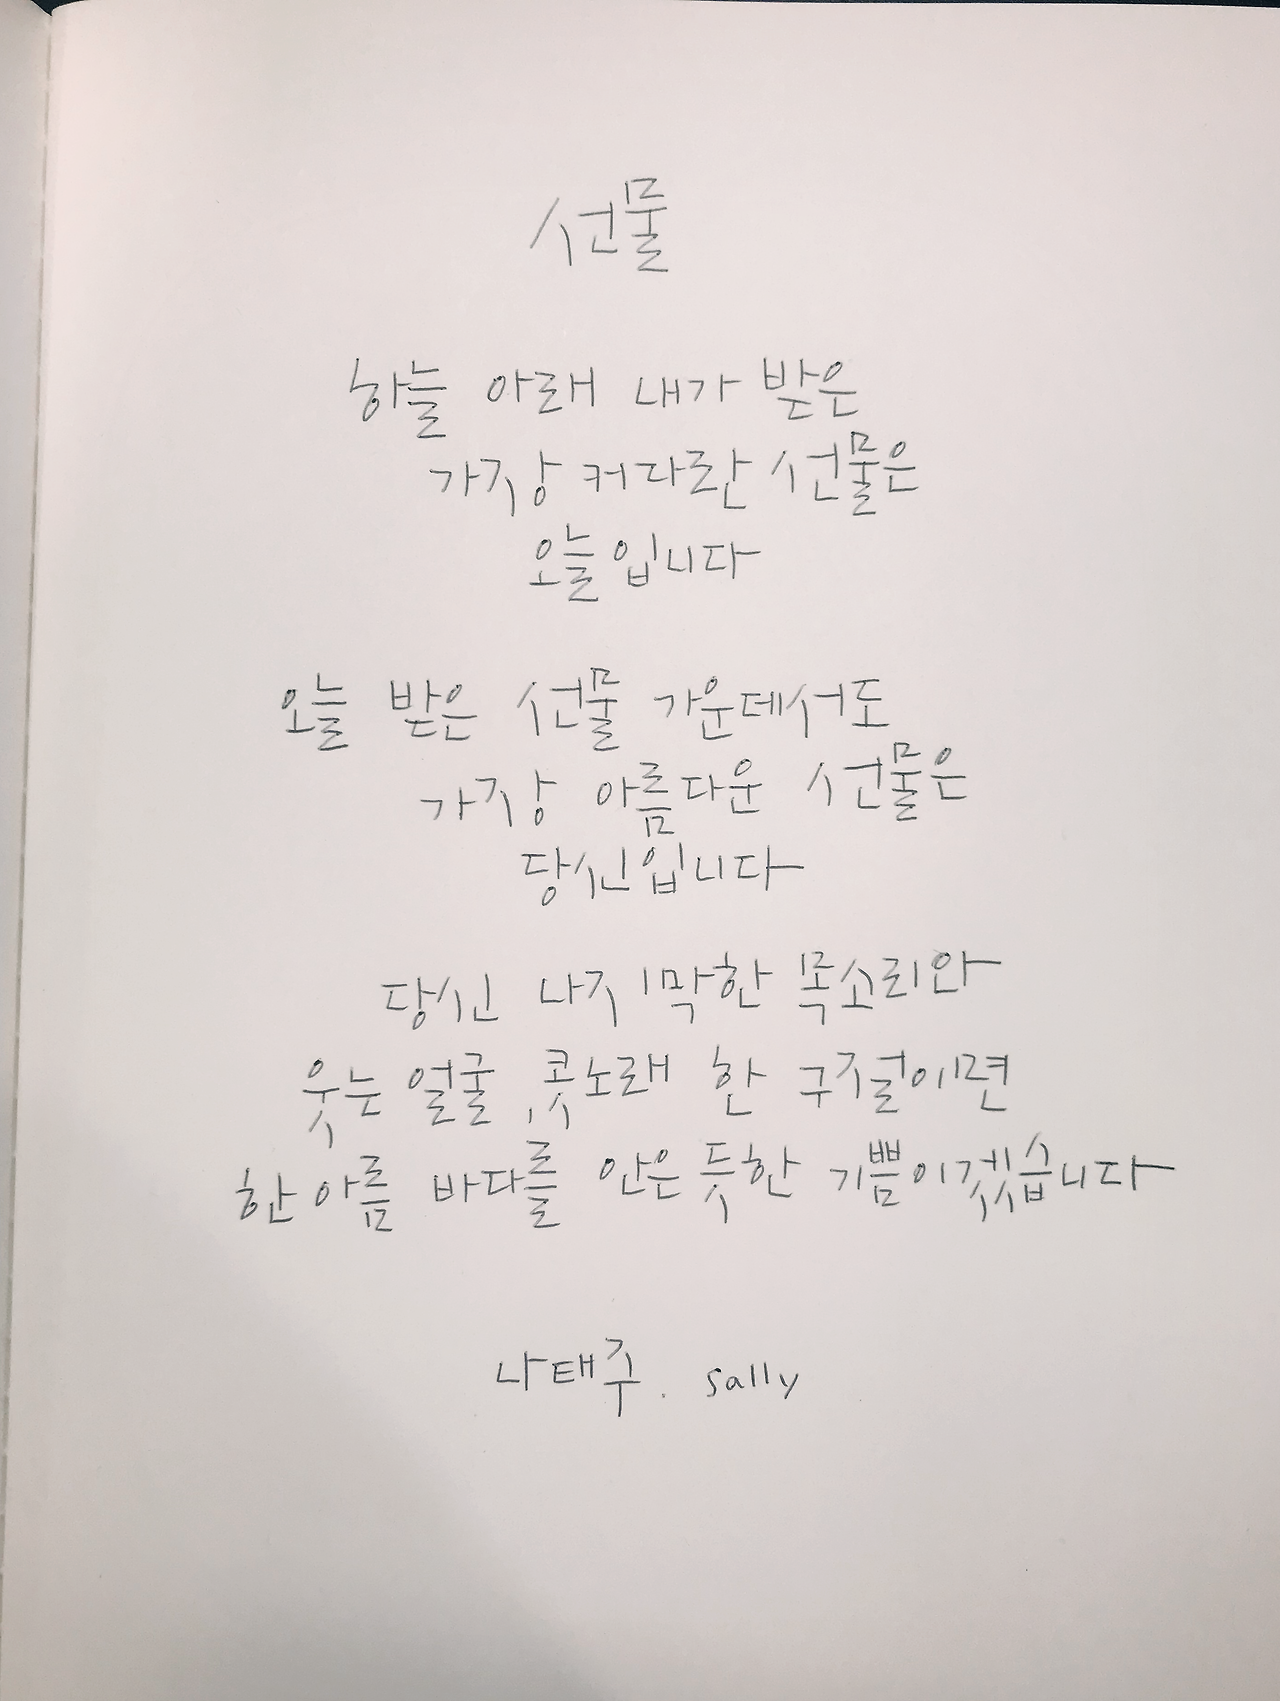 선물
하늘 아래 내가 받은
가장 커다란 선물은
오늘입니다
오늘 받은 선물 가운데서도
가장 아름다운 선물은
당신입니다
당신 나지막한 목소리와
웃는 얼굴, 콧노래 한 구절이면
한아름 바다를 안은 듯한 기쁨이겠습니다
나태주. sally